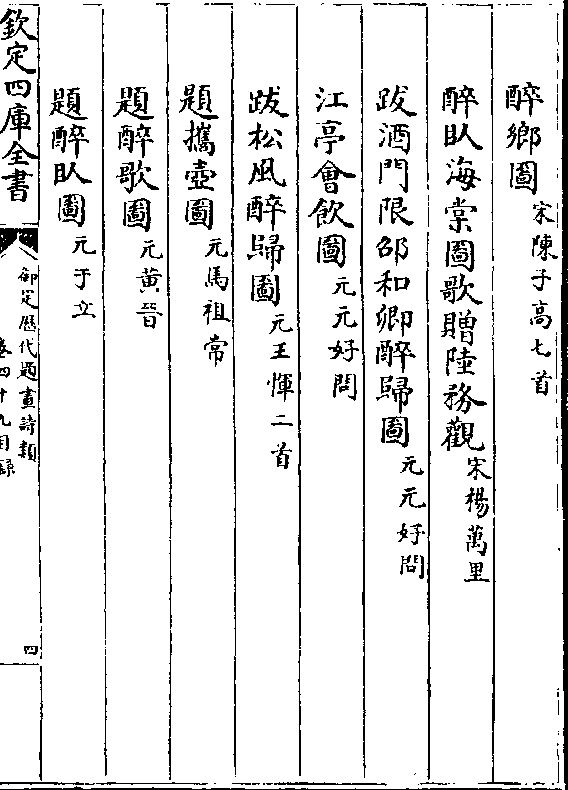 醉鄉圖宋陳子高七首
醉臥海棠圖歌贈陸務觀宋楊萬里
跋酒門限邵和卿醉歸圖元元好問
江亭會飲圖元元好問
跋松風醉歸圖元王惲二首
題攜壺圖元馬祖常
題醉歌圖元黃晉
題醉臥圖元于立
欽定四庫全書
御定歷代題畫詩類
卷四十九目錄
四